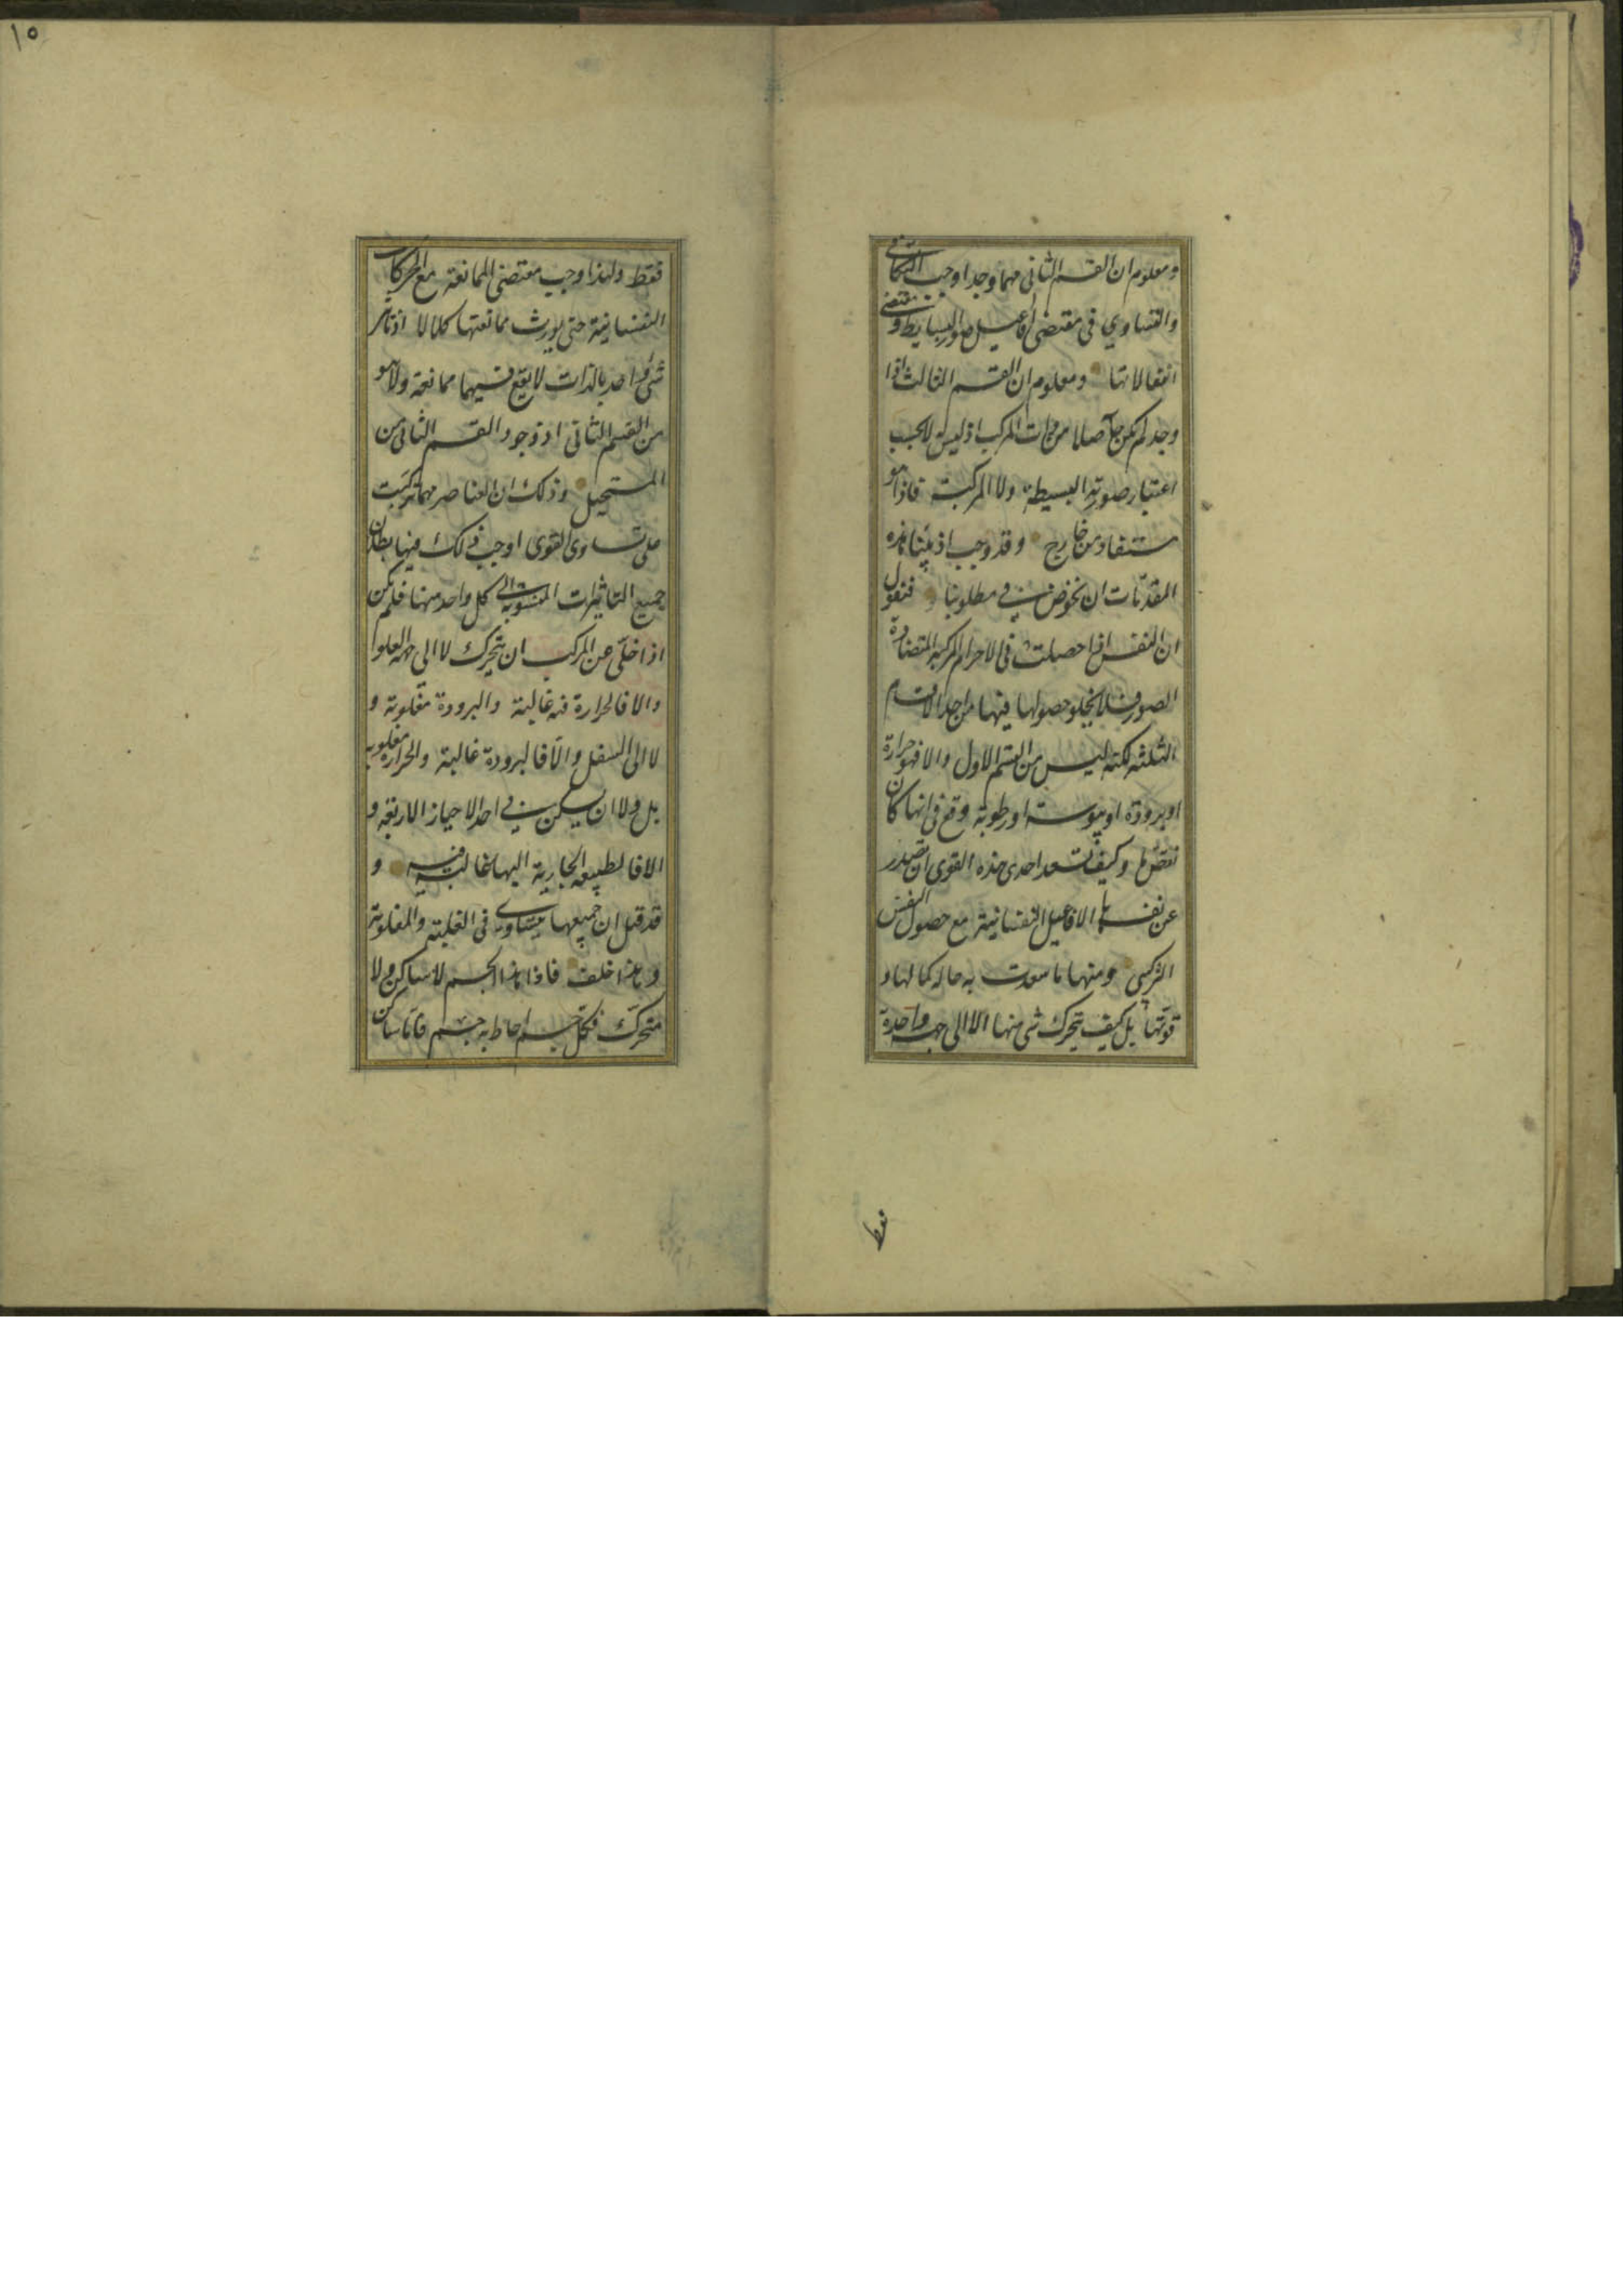 ومعلوم ان القسم الثانى مهما وجد اوجب التكافى
والتساوي فى مقتضى افاعيل صور البسايط ومقتضى
انفعالاتها ومعلوم ان القسم الثالث اذا
وجد لم يكن حاصلا من ذات المركب اذ ليس لا بحسب
اعتبار صورته البسيطة ولا المركبة فاذا هو
مستفاد من خارج وقد وجب اذ بينا هذه
المقدمات ان نخوض فى مطلوبنا فنقول
ان النفس اذا حصلت فى الاجرام المركبة المتضادة
الصور فلا يخلو حصولها فيها من احد الاقسام
الثلثة لكنه ليس من القسم الاول والا فهو حرارة
او برودة او يبوسة او رطوبة وقع فى انها كان
نقص ما وكيف تستعد احدى هذه القوى ان تصدر
عن نفسها الافاعيل النفسانية مع حصول النقص
التركيبى ومنها ما سعدت به حالة كمالها و
قوتها بل كيف يتحرك شى منها الا الى جهة واحدة
فقط
١٥
فقط ولهذا وجب مقتضى الممانعة مع الحركات
النفسانية حتى يورث ممانعتها كلالا اذ تاثير
شى واحد بالذات لا يقع فيهما ممانعة ولا هو
من القسم الثانى اذ وجود القسم الثانى من
المستحيل وذلك ان العناصر مهما تركبت
على تساوى القوى اوجب ذلك فيها بطلان
جميع التاثيرات المنسوبة الى كل واحد منها فلم يكن
اذا خلى عن المركب ان يتحرك لا الى جهة العلو
والا فالحرارة فيه غالبة والبرودة مغلوبة و
لا الى السفل والا فالبرودة غالبة والحرارة مغلوبة
بل ولا ان يسكن فى احد الاحياز الاربعة و
الا فالطبيعة الجارية اليها غالبة فيه و
قد قيل ان جميعها يتساوى فى الغلبة والمغلوبية
وهذا خلف فاذا هذا الجسم لا ساكن ولا
متحرك فكل جسم احاط به جسم فاما ساكن